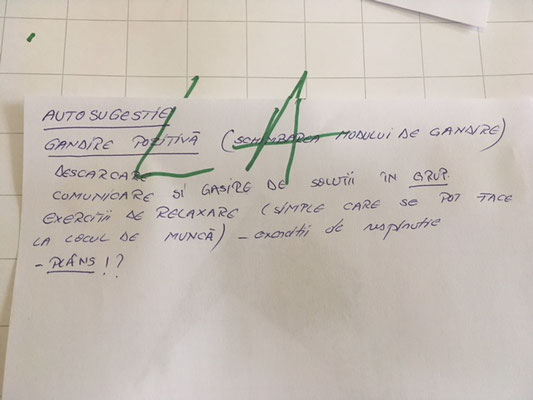 L A
AUTOSUGESTIE
GANDIRE POZITIVĂ (SCHIMBAREA MODULUI DE GANDIRE)
DESCARCARE
COMUNICARE SI GASIRE DE SOLUTII ÎN GRUP.
EXERCITII DE RELAXARE (SIMPLE CARE SE POT FACE
LA LOCUL DE MUNCĂ) - exercitii de respiratie
- PLÂNS !?